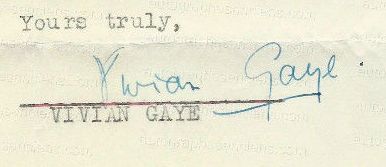 Yours truly,
Vivian Gaye.
VIVIAN GAYE